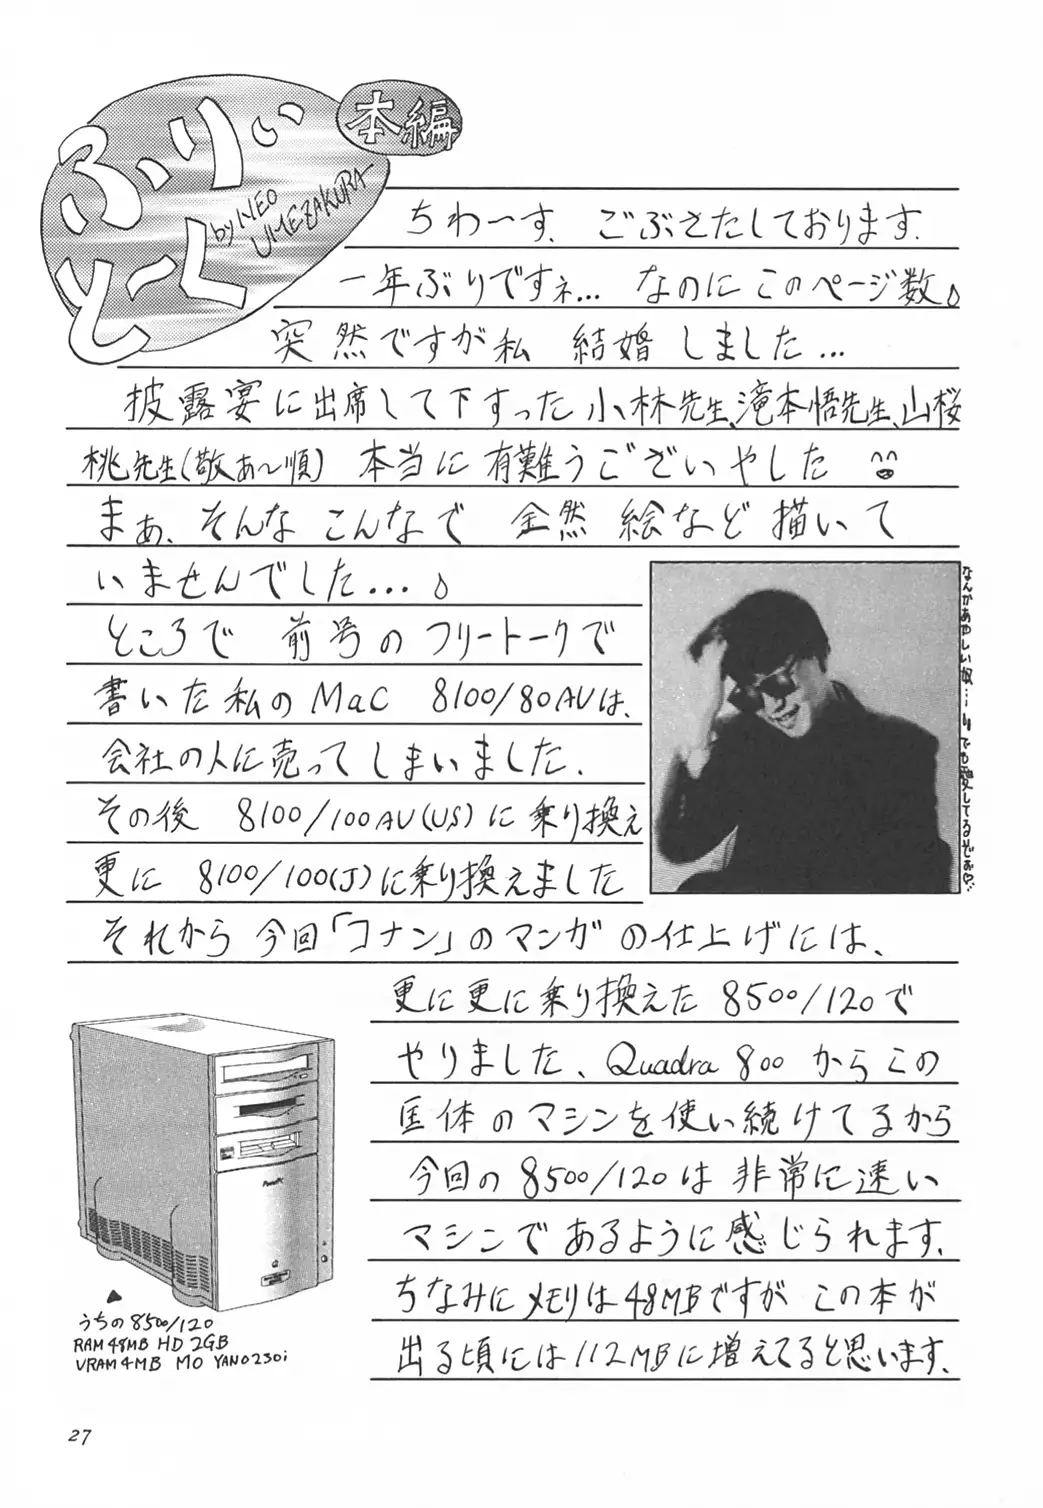 ふりぃ
とーく
本編
by NEO
UMEZAKURA
ちわーす、ごぶさたしております.
一年ぶりですネ… なのにこのページ数。
突然ですが私 結婚しました…
披露宴に出席して下すった小林先生、滝本悟先生、山桜
桃先生(敬あ〜順) 本当に有難うございやした
まぁ、そんなこんなで 全然 絵など描いて
いませんでした…。
ところで 前号のフリートークで
書いた私のMac 8100/80AVは、
会社の人に売ってしまいました.
その後 8100/100AV(US)に乗り換え
更に 8100/100(J)に乗り換えました
それから今回「コナン」のマンガの仕上げには、
更に更に乗り換えた 8500/120で
やりました、Quadra 800 からこの
筐体のマシンを使い続けてるから
今回の8500/120は非常に速い
マシンであるように感じられます.
ちなみにメモリは48MBですが この本が
出る頃には112MBに増えてると思います.
なんかあやしい奴…でも愛してるぞぉ♡…
PowerPC
うちの8500/120
RAM48MB HD 2GB
VRAM4MB MO YANO230i
27